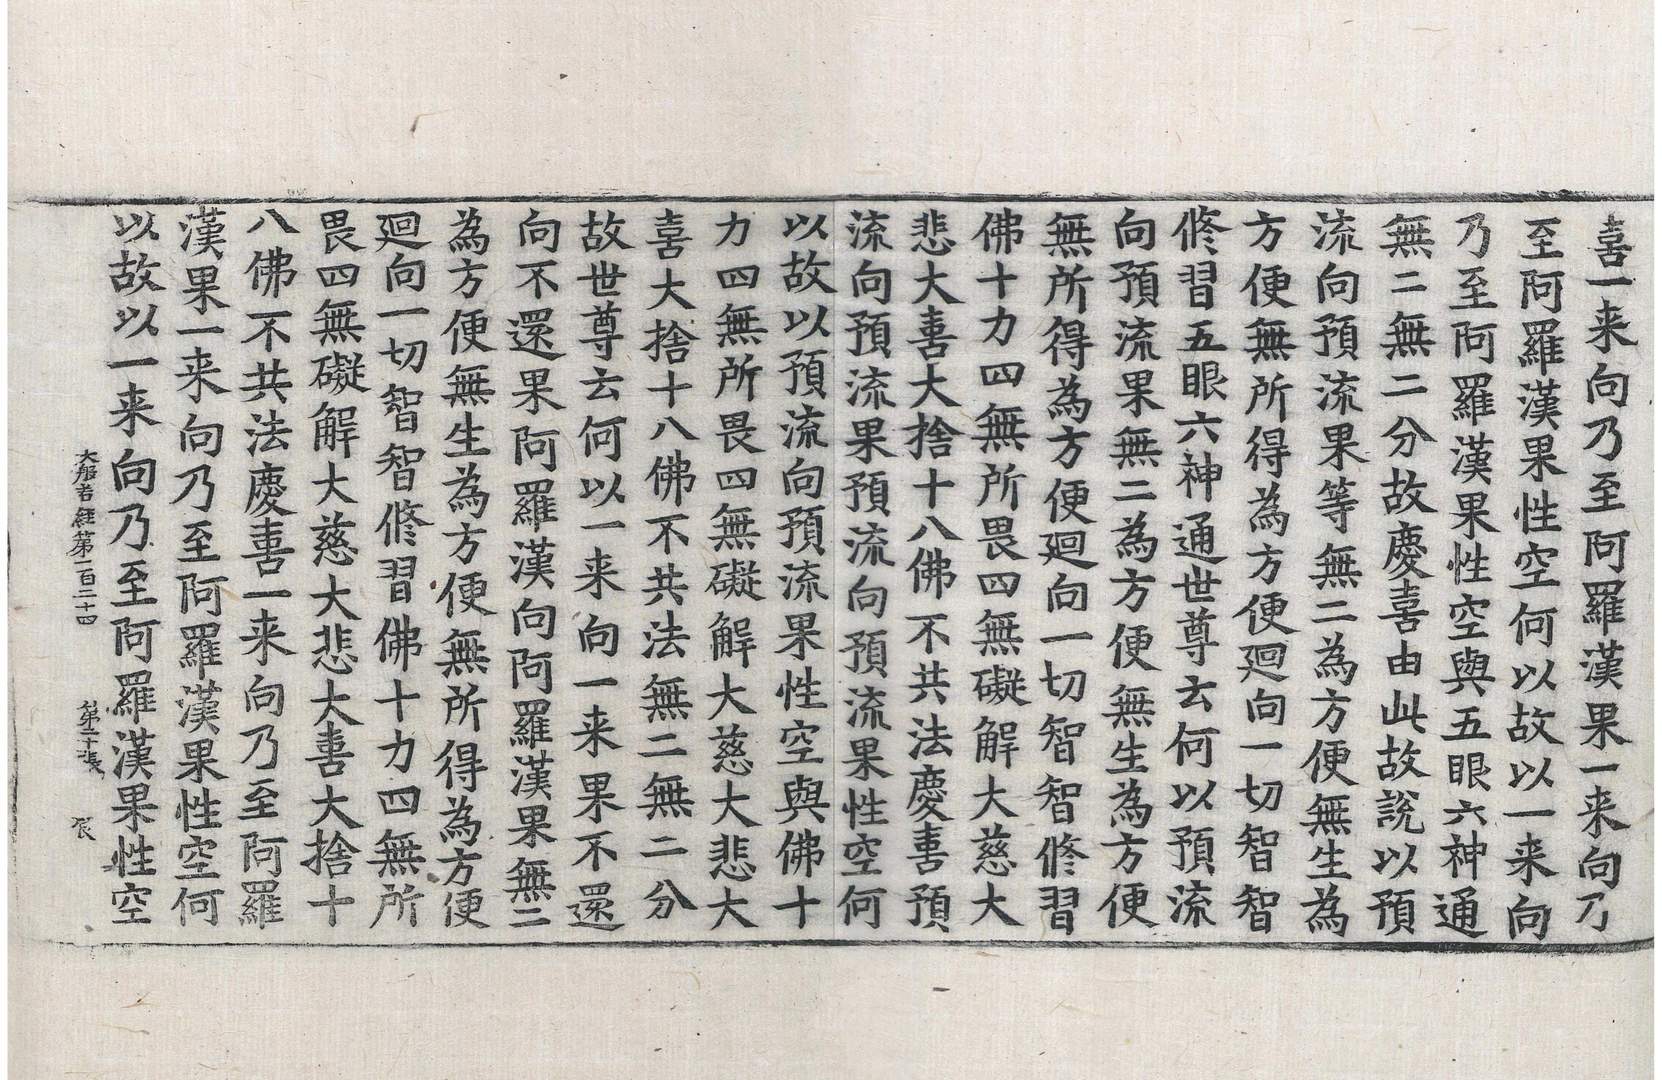 喜一来向乃至阿羅漢果一来向乃
至阿羅漢果性空何以故以一来向
乃至阿羅漢果性空與五眼六神通
無二無二分故慶喜由此故說以預
流向預流果等無二為方便無生為
方便無所得為方便廻向一切智智
修習五眼六神通世尊云何以預流
向預流果無二為方便無生為方便
無所得為方便廻向一切智智修習
佛十力四無所畏四無礙解大慈大
悲大喜大捨十八佛不共法慶喜預
流向預流果預流向預流果性空何
以故以預流向預流果性空與佛十
力四無所畏四無礙解大慈大悲大
喜大捨十八佛不共法無二無二分
故世尊云何以一来向一来果不還
向不還果阿羅漢向阿羅漢果無二
為方便無生為方便無所得為方便
廻向一切智智修習佛十力四無所
畏四無礙解大慈大悲大喜大捨十
八佛不共法慶喜一来向乃至阿羅
漢果一来向乃至阿羅漢果性空何
以故以一来向乃至阿羅漢果性空
大般若經第一百二十四 第二十張 辰